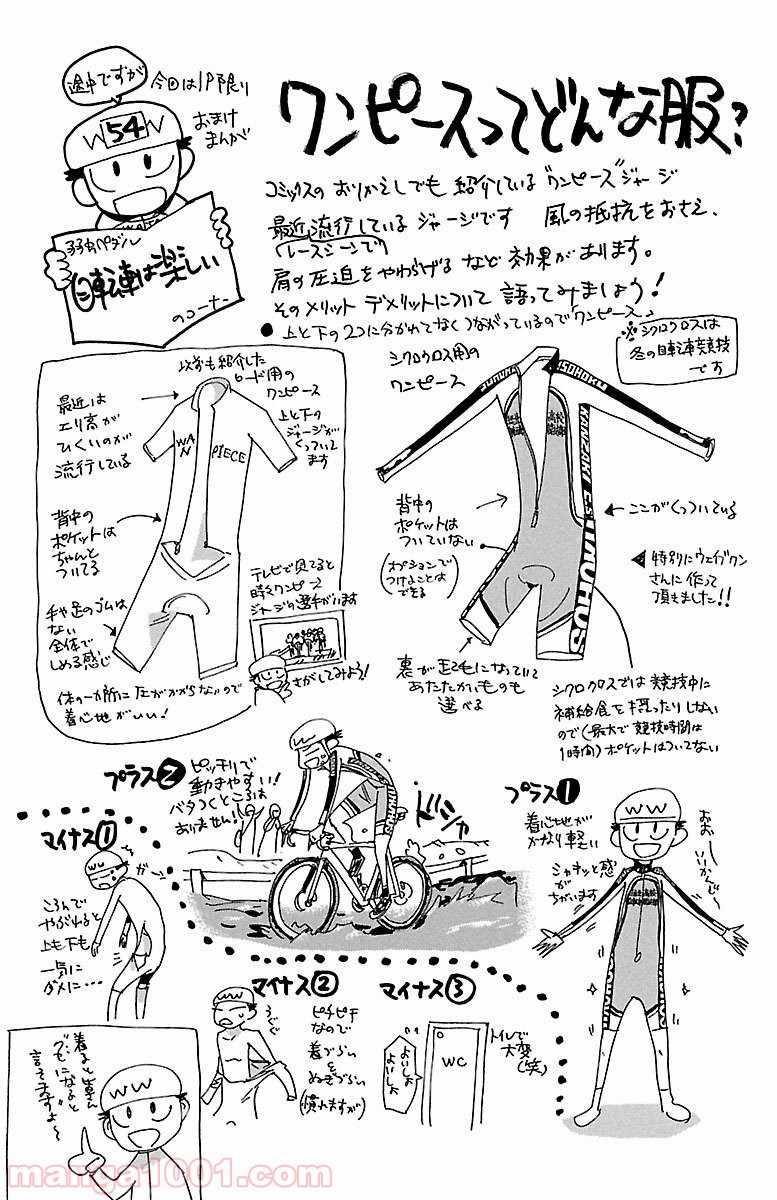 途中ですが
今回は1P限り
おまけ
まんが
54
弱虫ペダル
自転車は楽しい
のコーナー
ワンピースってどんな服?
コミックスのおりかえしでも紹介している"ワンピース"ジャージ
最近流行しているジャージです 風の抵抗をおさえ、
(レースシーンで)
肩の圧迫をやわらげるなど効果があります。
そのメリットデメリットについて語ってみましょう!
●上と下の2つに分かれてなくつながっているので「ワンピース」
※シクロクロスは
冬の自転車競技
です
以前も紹介した
ロード用の
ワンピース
上と下の
ジャージが
くっついて
ます
最近は
エリ高が
ひくいのが
流行している
WAN
PIECE
背中の
ポケットは
ちゃんと
ついてる
手や足のゴムは
ない
全体で
しめる感じ
テレビで見てると
時々ワンピース
ジャージの選手がいます
さがしてみよう!
体の一か所に圧がかからないので
着心地がいい!
シクロクロス用の
ワンピース
SOHOKU
背中の
ポケットは
ついていない
(オプションで
つけることは
できる)
ここがくっついている
特別にウェイブワン
さんに作って
頂きました!!
裏が起毛になっていて
あたたかいものも
選べる
シクロクロスでは競技中に
補給食を摂ったりしない
ので(最大で競技時間は
1時間)ポケットはついてない
プラス②
ピッチリで
動きやすい!
バタつくところは
ありません!
ドシャ
プラス①
着心地が
かなり軽い
シャキッと感
が
ちがいます
おお〜
いいかんじ〜
マイナス①
ガーン
ころんで
やぶれると
上も下も
一気に
ダメに…
マイナス②
うぐぐ
ピチピチ
なので
着づらい
&
ぬぎづらい
(慣れますが)
マイナス③
WC
よいしょ
よいしょ
トイレで
大変
(笑)
着ると軍人
グモになると
言えますよ〜
manga1001.com